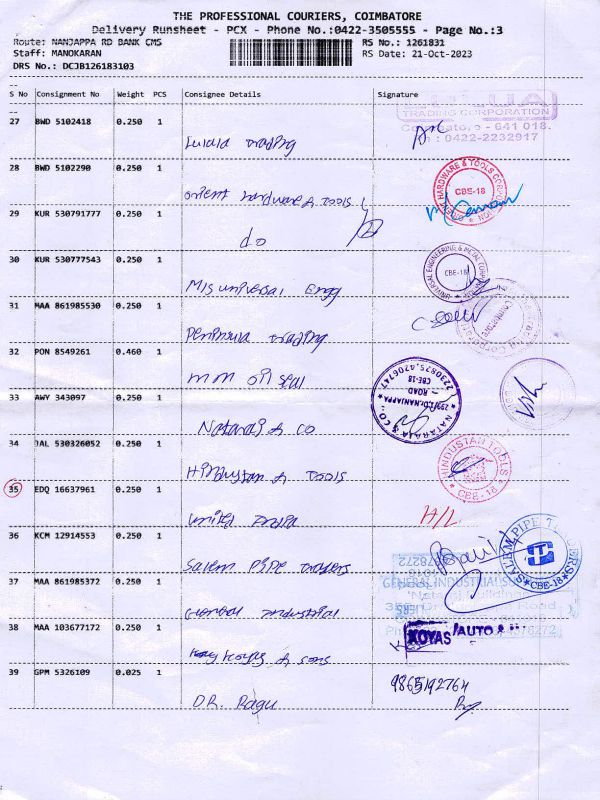 THE PROFESSIONAL COURIERS, COIMBATORE
Delivery Runsheet - PCX - Phone No.:0422-3505555 - Page No.:3
Route: NANJAPPA RD BANK CMS RS No.: 1261831
Staff: MANOKARAN RS Date: 21-Oct-2023
DRS No.: DCJB126183103
S No Consignment No Weight PCS Consignee Details Signature
27 BWD 5102418 0.250 1
TRADING CORPORATION
Coimbatore - 641 018.
: 0422-2232917
trading
28 BWD 5102290 0.250 1
HARDWARE & TOOLS
CBE-18
orient hardware & Tools
29 KUR 530791777 0.250 1
do
30 KUR 530777543 0.250 1
UNIVERSAL ENGINEERING & METAL
CBE-18
M/s universal Engg
31 MAA 861985530 0.250 1
Coimbatore
peninsula trading
32 PON 8549261 0.460 1
mm oil seal
33 AWY 343097 0.250 1
NATARAJ & CO
NANJAPPA
ROAD
CBE-18
2230875,4706747
Nataraj & CO
34 JAL 530326052 0.250 1
HINDUSTAN TOOLS
CBE-18
Hindustan & Tools
35 EDQ 16637961 0.250 1
H/L
united India
36 KCM 12914553 0.250 1
SALEM PIPE TRADERS
CBE-18
Salem Pipe traders
37 MAA 861985372 0.250 1
GENERAL INDUSTRIALS
Road
General Industrial
38 MAA 103677172 0.250 1
KOYAS AUTO &
& sons
39 GPM 5326109 0.025 1
9865192764
DR. Ragu